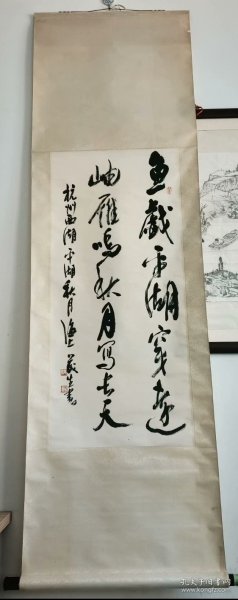 鱼戏平湖穿远
岫雁鸣秋月写长天
杭州西湖平湖秋月
孔夫子旧书网
www.kongfz.com